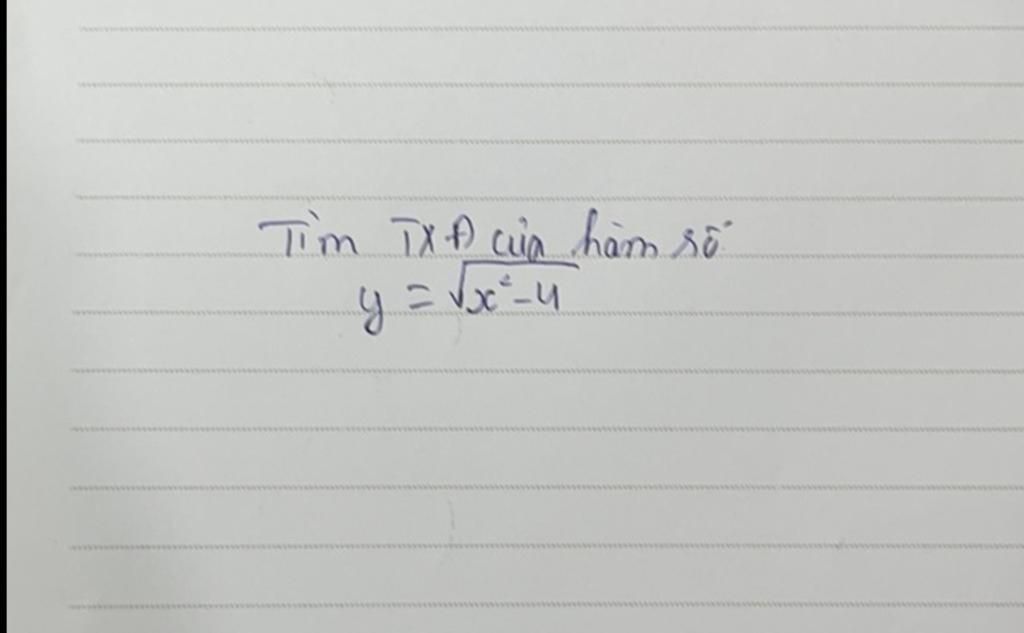 Tìm TXĐ của hàm số
y = √x²-4